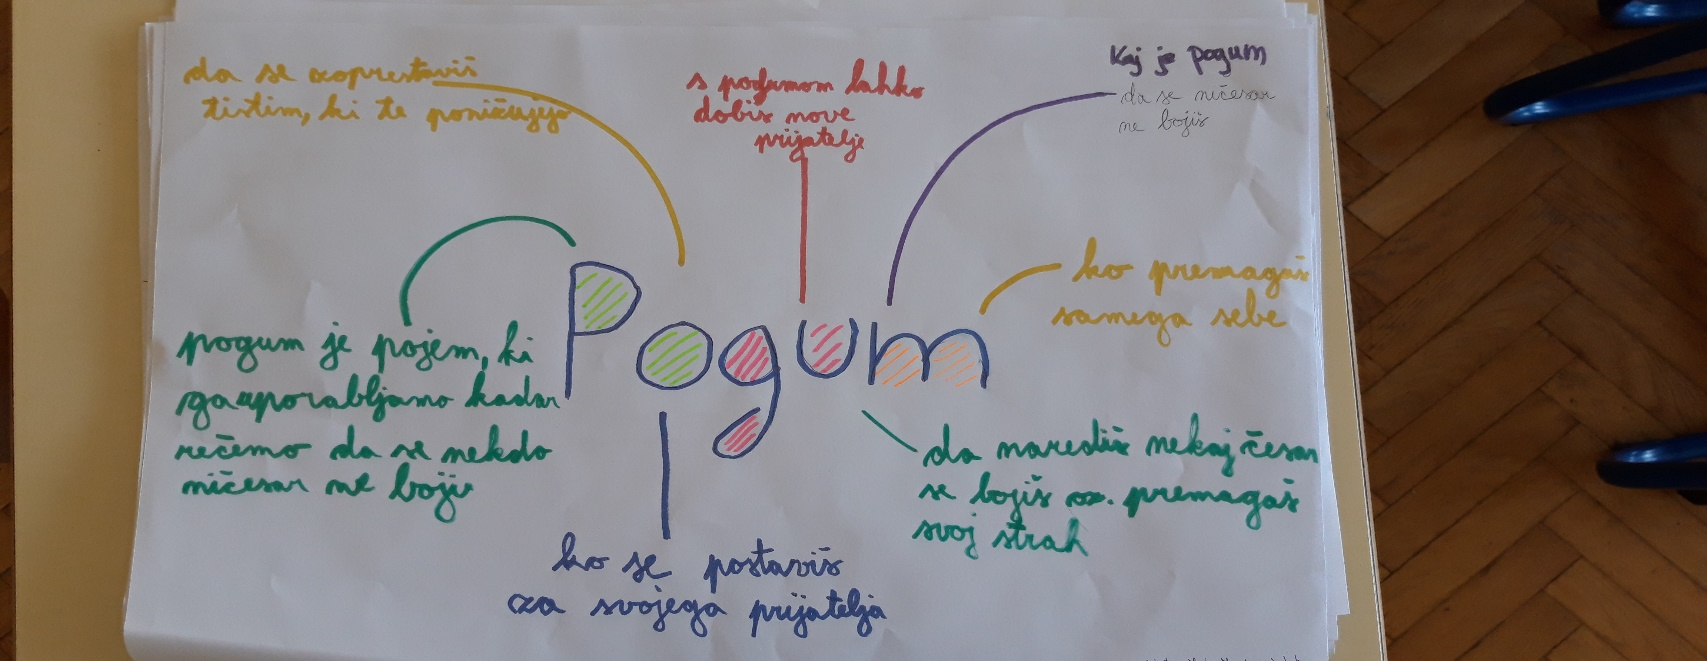 da se zoprestaviš
tistim, ki te poničujejo
s pogumom lahko
dobiš nove
prijatelje
Kaj je pogum
da se ničesar
ne bojiš
ko premagaš
samega sebe
Pogum
pogum je pojem, ki
ga uporabljamo kadar
rečemo da se nekdo
ničesar ne boji
da narediš nekaj česar
se bojiš oz. premagaš
svoj strah
ko se postaviš
za svojega prijatelja